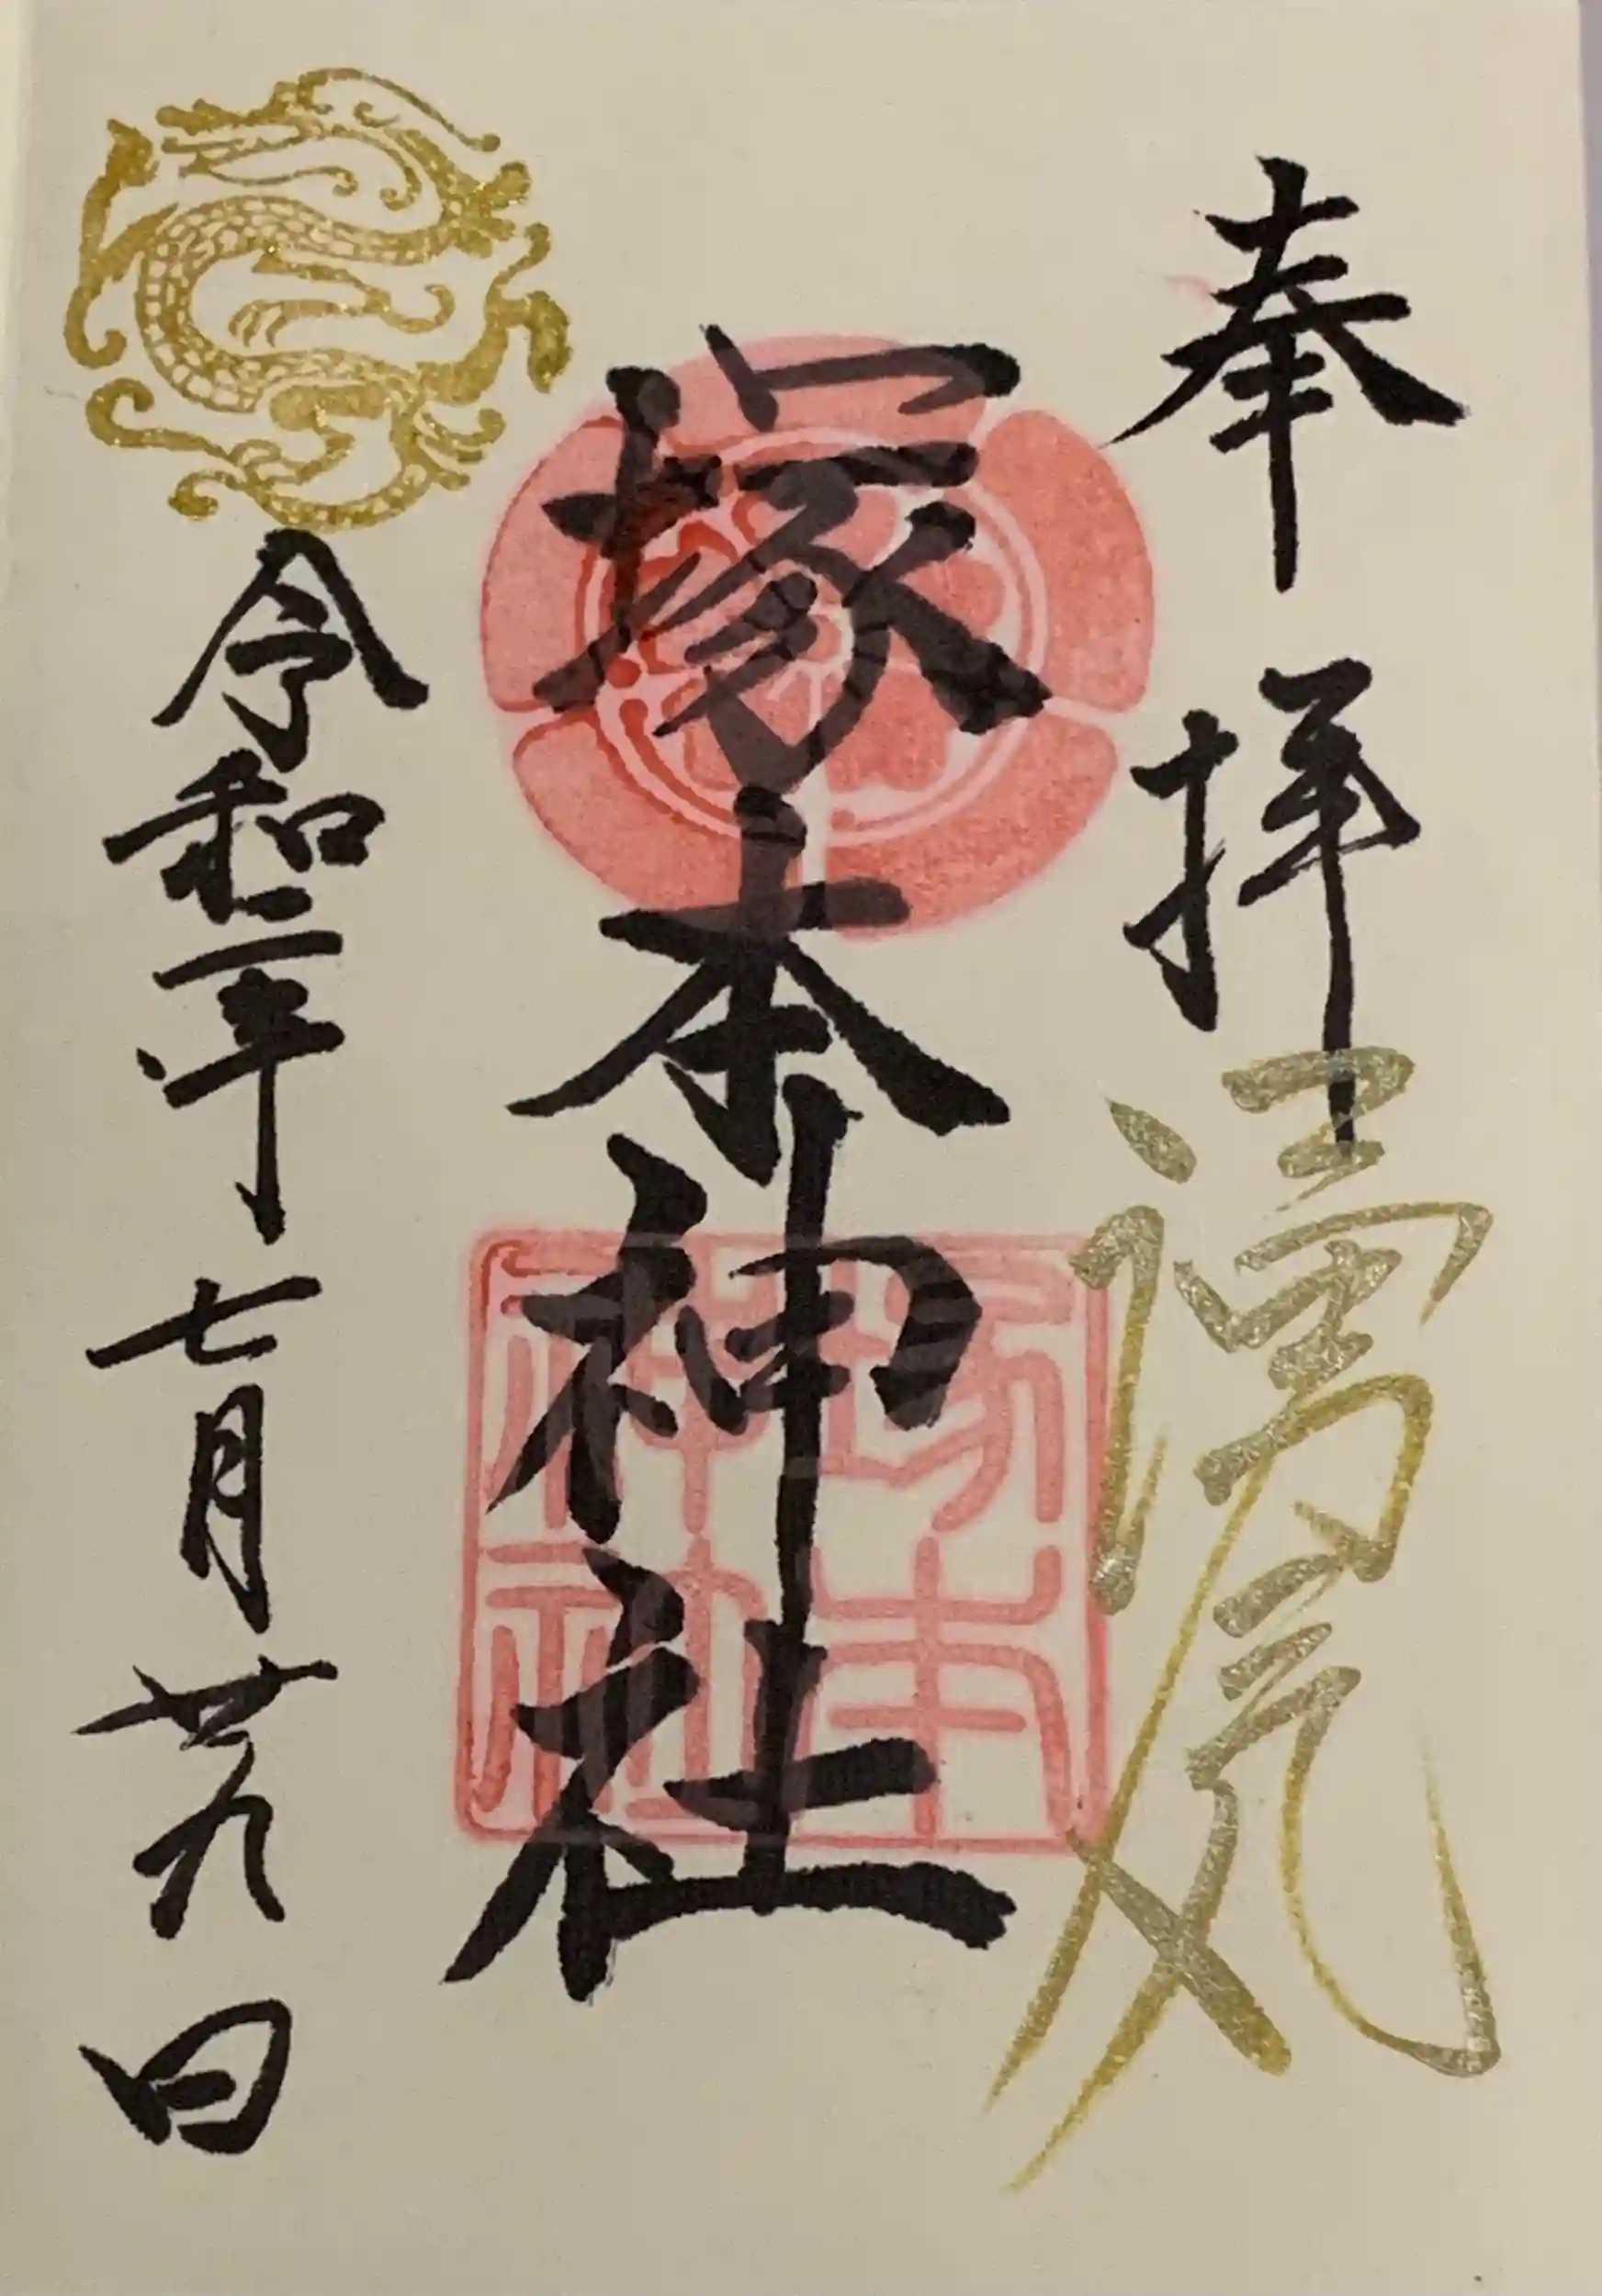 奉拝
塚本神社
塚本
神社
令和二年七月廿九日